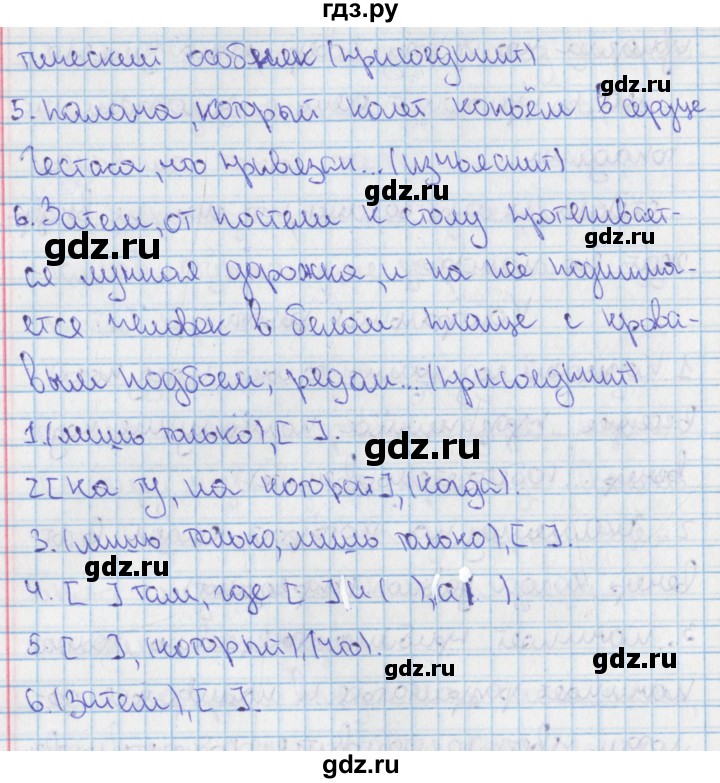 гдз.ру
тический особняк (присоединит)
gdz.ru
5. палача, который колет копьём в сердце
gdz.ru
Гестаса, что привязан... (изъяснит)
gdz.ru
6. Затем, от постели к столу протягивает-
gdz.ru
gdz.ru
ся лунная дорожка, и на неё поднима-
ется человек в белом плаще с крова-
вым подбоем, рядом... (присоединит)
1. (лишь только), [ ].
gdz.ru
2 [на ту, на которой], (когда).
3. (лишь только, лишь только), [ ].
gdz.ru
4. [ ] там, где [ ] и ( ), (а ).
5. [ ], (который), (что).
gdz.ru
gdz.ru
6. (Затем), [ ].
gdz.ru